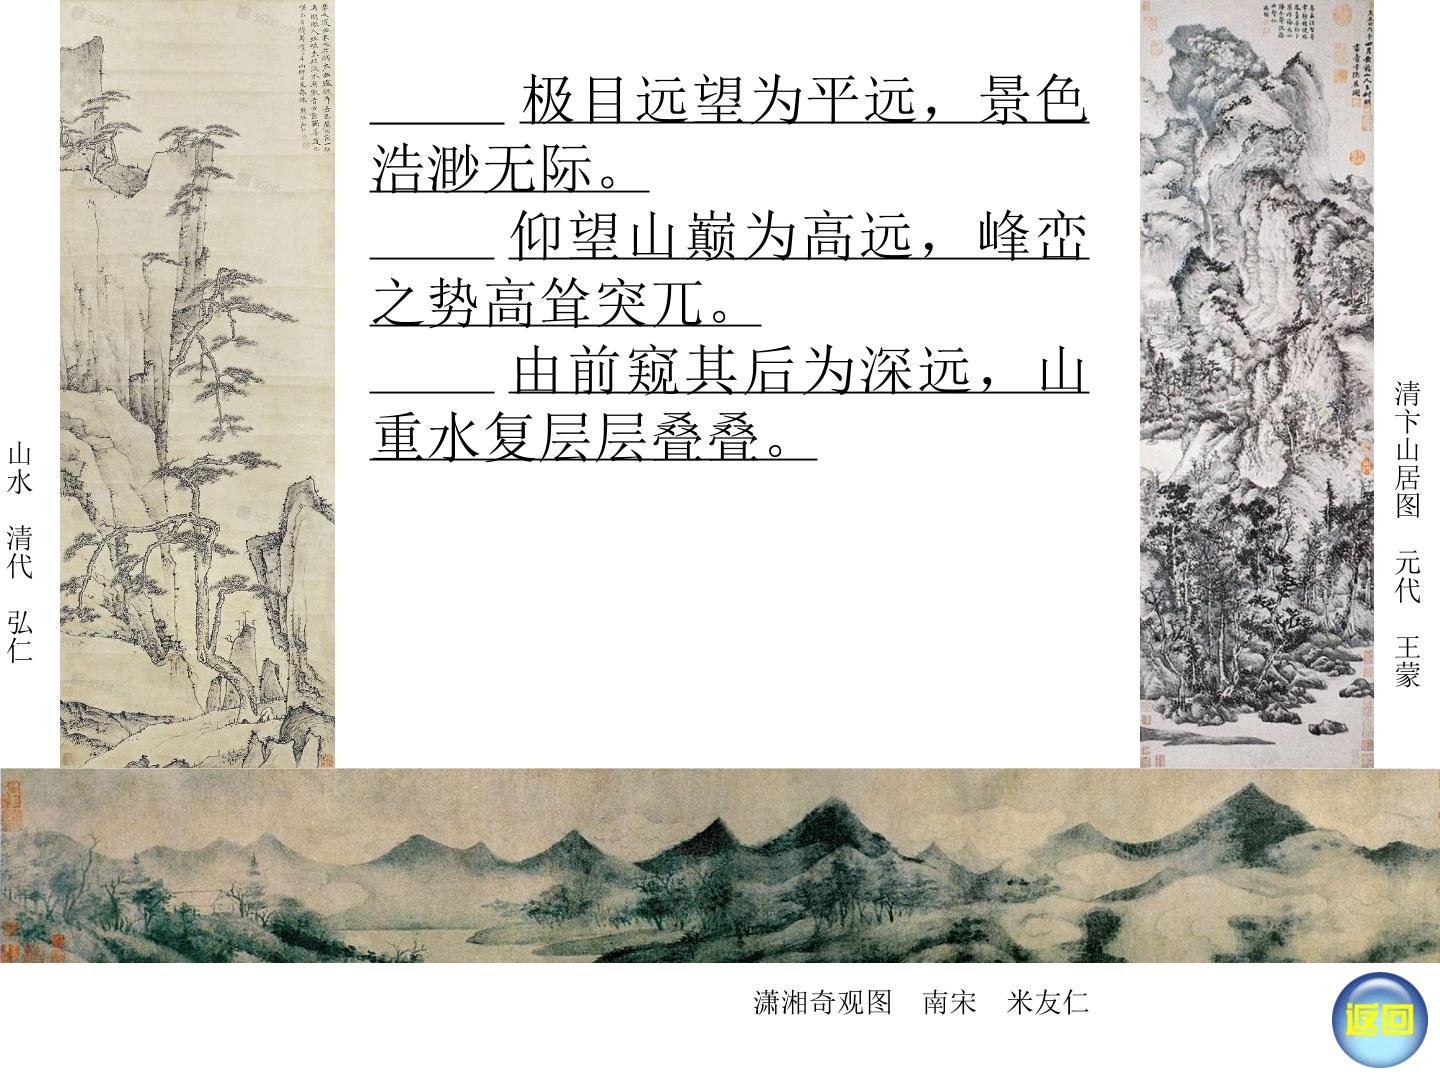 极目远望为平远，景色
浩渺无际。
仰望山巅为高远，峰峦
之势高耸突兀。
由前窥其后为深远，山
重水复层层叠叠。
山水 清代 弘仁
清卞山居图 元代 王蒙
潇湘奇观图 南宋 米友仁
返回